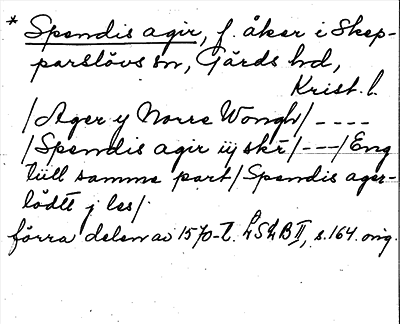 * Spendis agir, f. åker i Skep-
parslövs sn, Gärds hd,
Krist. l.
/Ager y Norre Wongh/ ----
/Spendis agir iij skr/---/Eng
till samme part/Spendis ager-
lödtt j les/.
förra delen av 1570-t. LSLB II, s. 164. orig.